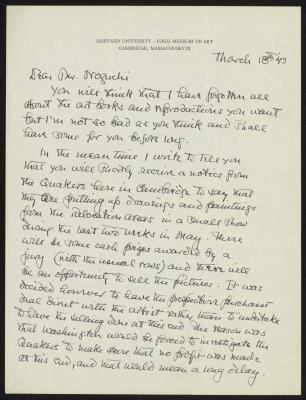 HARVARD UNIVERSITY · FOGG MUSEUM OF ART
CAMBRIDGE, MASSACHUSETTS
March 18th 43
Dear Mr. Noguchi
You will think that I have forgotten all
about the art books and reproductions you want
but I'm not so bad as you think and shall
have some for you before long.
In the mean time I write to tell you
that you will shortly receive a notice from
the Quakers here in Cambridge to say that
they are putting up drawings and paintings
from the relocation areas in a small show
during the last two weeks in May. There
will be some cash prizes awarded by a
jury (with the usual rows) and there will
be an opportunity to sell the pictures. It was
decided however to have the prospective purchaser
deal direct with the artist rather than to undertake
to have the selling done at this end. The reason was
that Washington would be forced to investigate the
Quakers to make sure that no profit was made
at this end, and that would mean a long delay.